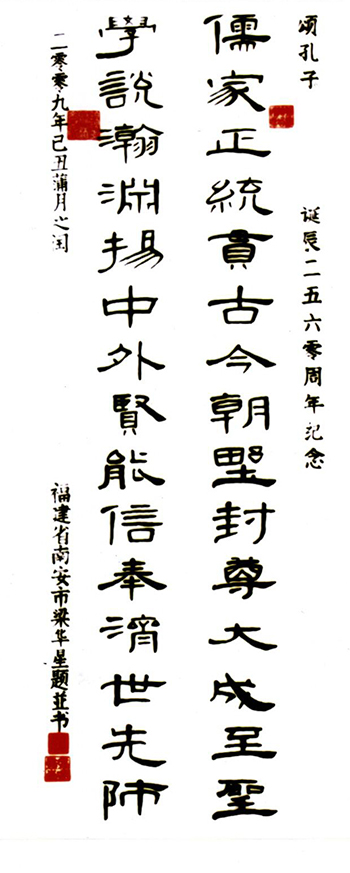 颂孔子
诞辰二五六零周年纪念
儒家正統貫古今朝野封尊大成至聖
學説瀚淵揚中外賢能信奉濟世先師
二零零九年己丑蒲月之闰
福建省南安市梁华星题並书